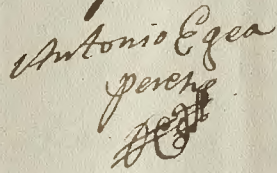 Antonio Egea
perche